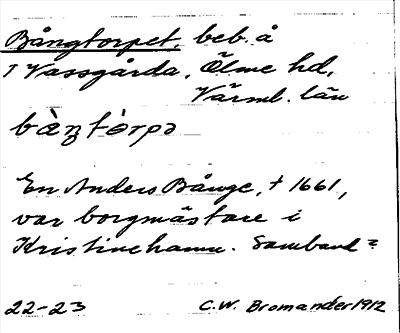 Bångtorpet, beb. å
1 Vassgårda, Ölme hd,
Värml. län
bàŋtòrpə
En Anders Bånge, † 1661,
var borgmästare i
Kristinehamn. Samband?
22-23 C.W. Bromander 1912